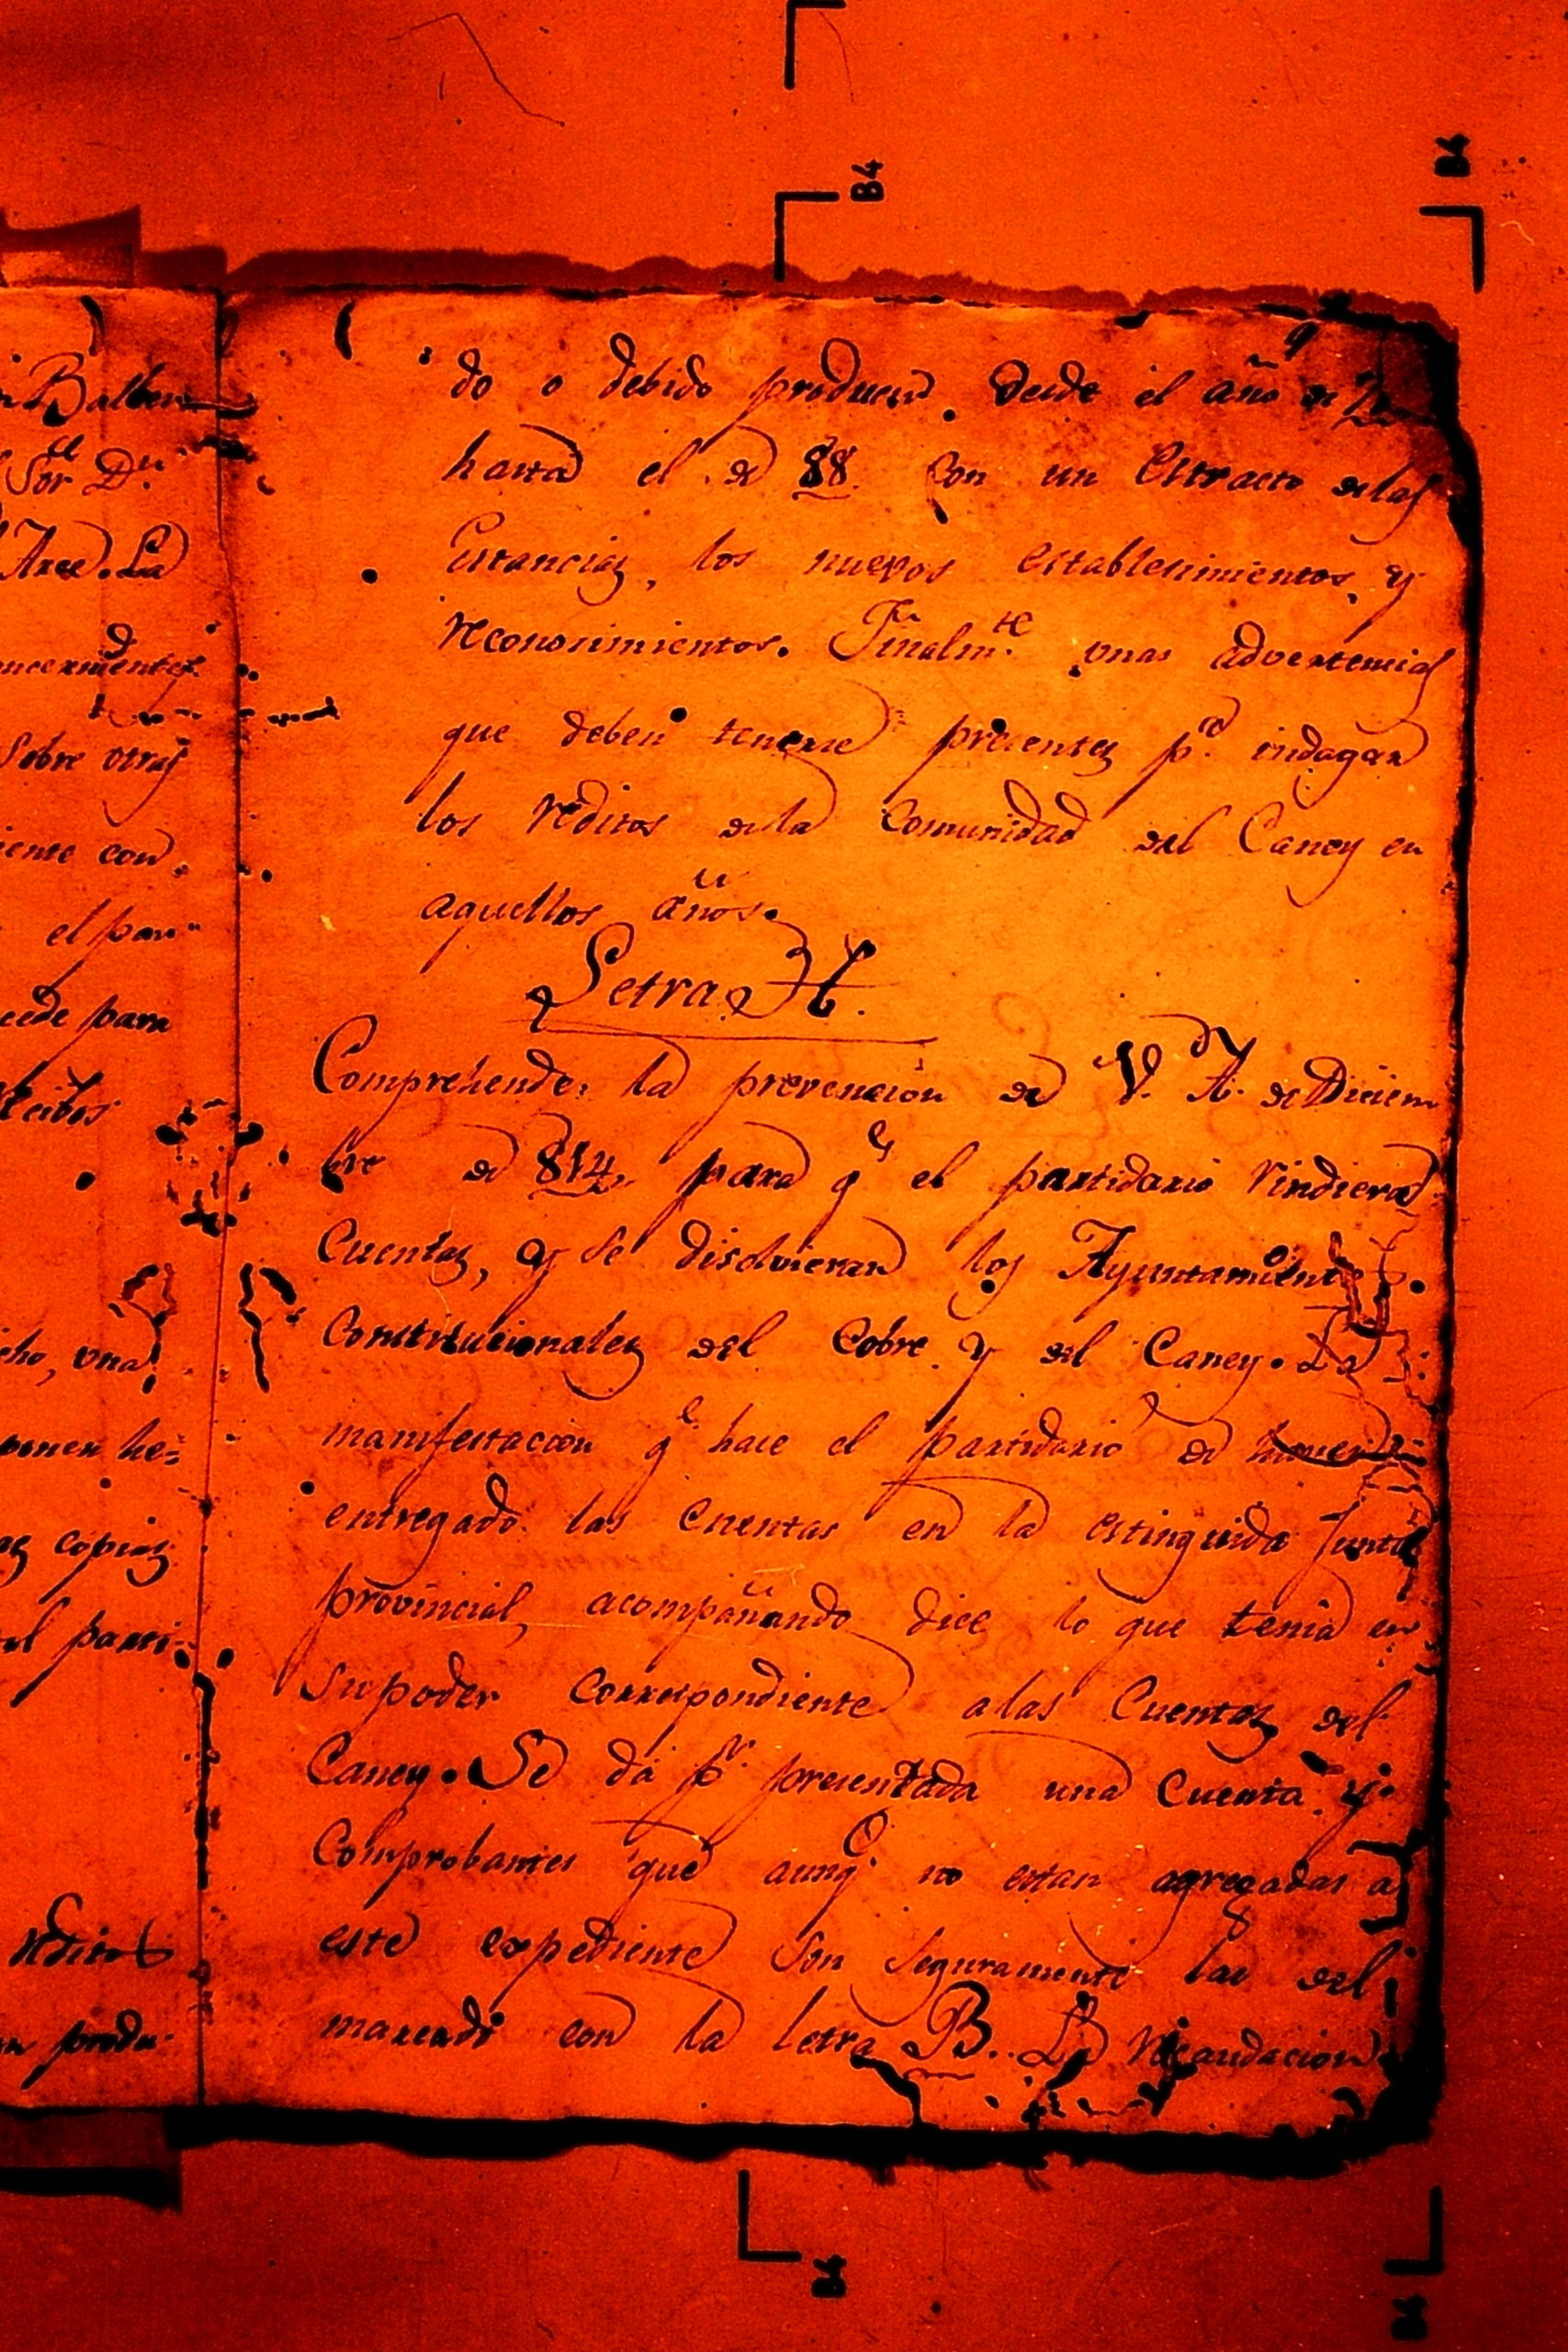 do o debido producir. desde el año de
hasta el de 88. Con un Estracto de las
Estancias, los nuevos establesimientos, y
reconosimientos. Finalm.te unas advertencias
que deben tenerse presentes p.a indagar
los reditos de la Comunidad del Caney en
aquellos años.
Letra H.
Comprehende, la prevencion de V. A. de Diciem
bre de 814, para q.e el partidario rindiera
Cuentas, y se disolvieran los Ayuntamientos
Constitucionales del Cobre y del Caney. La
manifestacion q.e hace el partidario de
entregado las Cuentas en la estinguida Junta
provincial, acompañando dice lo que tenia en
su poder correspondiente a las Cuentas del
Caney. Se da p.r presentada una Cuenta y
Comprobantes que aunq.e no estan agregadas a
este expediente son seguramente las del
marcado con la letra B. La recaudacion
Balben
Sor D.n
Arce. La
Sobre otras
iente con
el par
cede para
recibos
cho, una
ponen he=
copias
el parti-
reditos
produ-
B4
B4
B4
B4